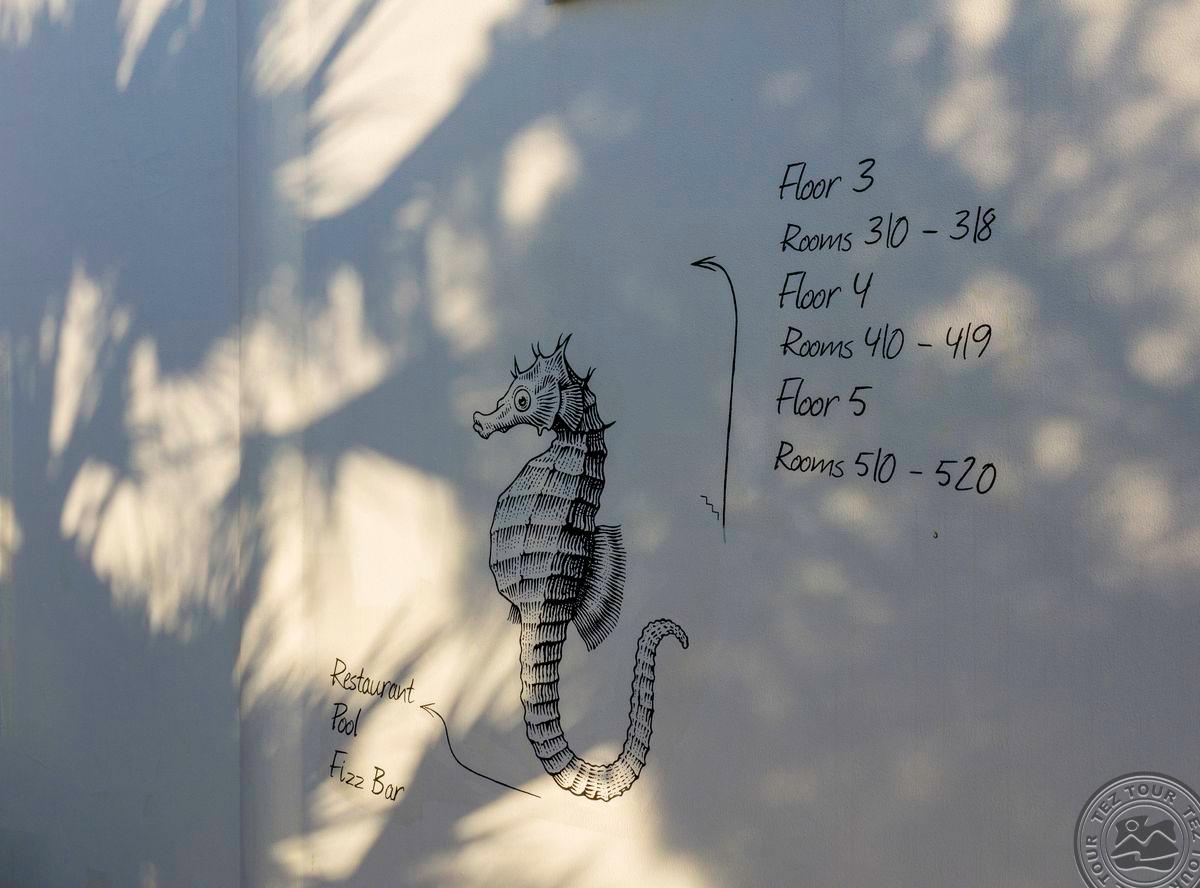 Floor 3
Rooms 310 - 318
Floor 4
Rooms 410 - 419
Floor 5
Rooms 510 - 520
Restaurant
Pool
Fizz Bar
TEZ TOUR TEZ TOUR